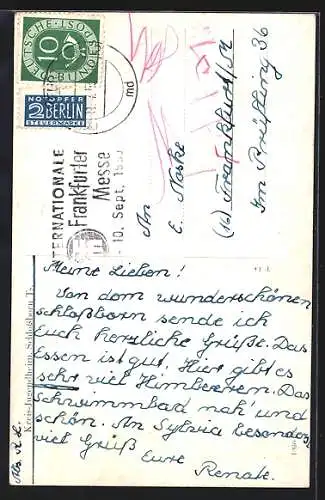 DEUTSCHE BUNDESPOST
10
NOTOPFER
2 BERLIN
STEUERMARKE
md
INTERNATIONALE
Frankfurter
Messe
- 10. Sept.
An
E. Naske
(16) Frankfurt/M
Im Prüfling 36
Meine Lieben!
Von dem wunderschönen
Schloßborn sende ich
Euch herzliche Grüße. Das
Essen ist gut. Hier gibt es
sehr viel Himbeeren. Das
Schwimmbad nah' und
schön. An Sylvia besonders
viel Grüß
Eure
Renate.
Kreis-Jugendheim, Schloßborn Ts.